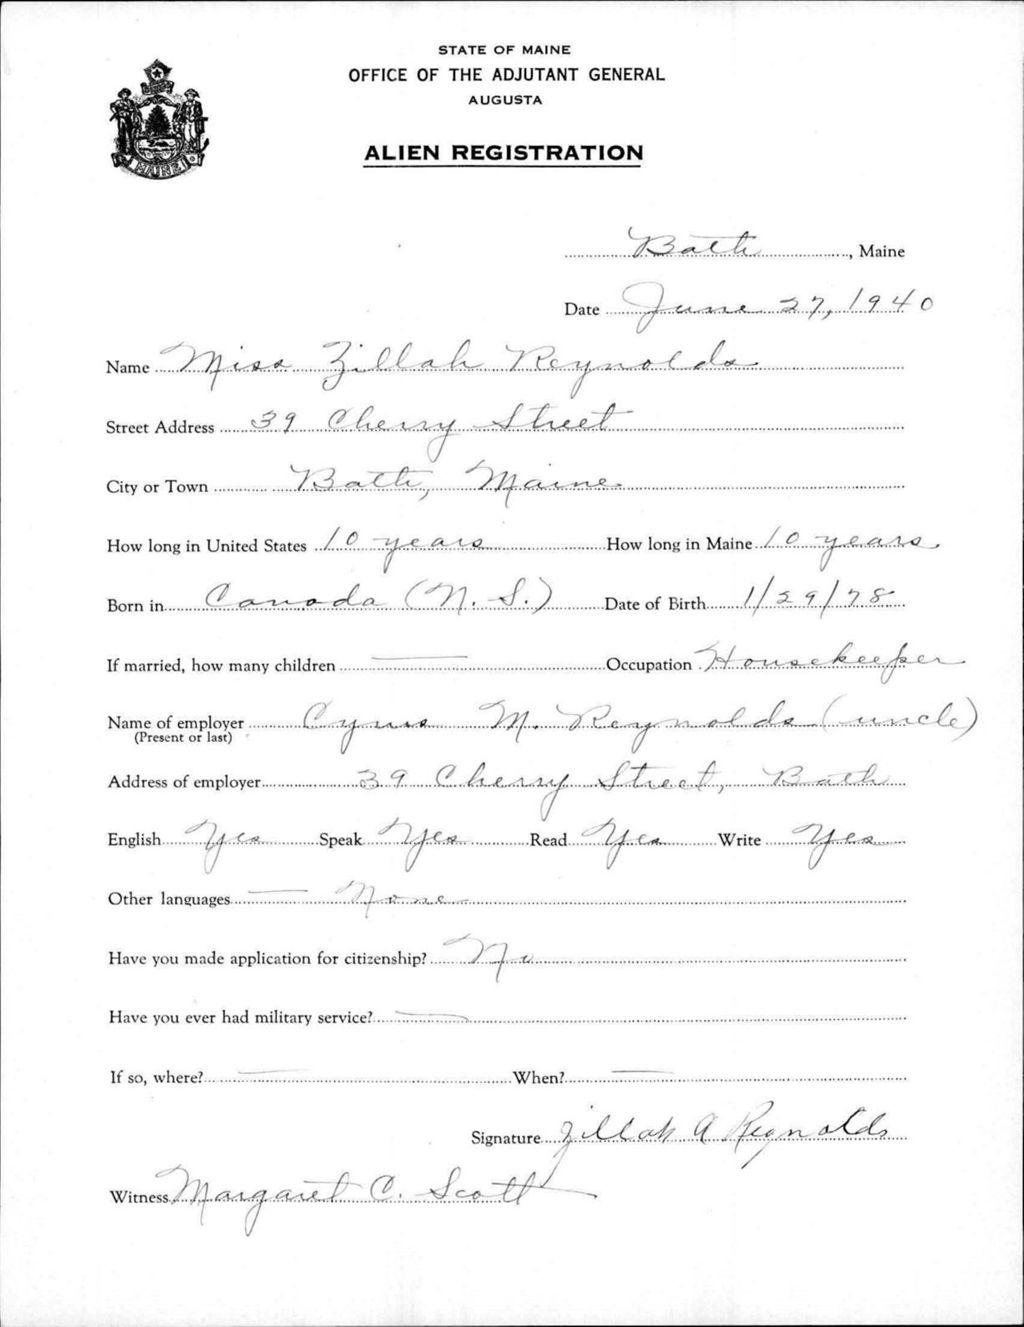 STATE OF MAINE
OFFICE OF THE ADJUTANT GENERAL
AUGUSTA
ALIEN REGISTRATION
MAINE
Bath, Maine
Date June 27, 1940
Name Miss Zillah Reynolds
Street Address 39 Cherry Street
City or Town Bath, Maine
How long in United States 10 years How long in Maine 10 years
Born in Canada (N. S.) Date of Birth 1/29/78
If married, how many children — Occupation Housekeeper
Name of employer Cyrus M. Reynolds (uncle)
(Present or last)
Address of employer 39 Cherry Street, Bath
English Yes Speak Yes Read Yes Write Yes
Other languages — None
Have you made application for citizenship? No
Have you ever had military service? —
If so, where? — When? —
Signature Zillah A Reynolds
Witness Margaret C. Scott